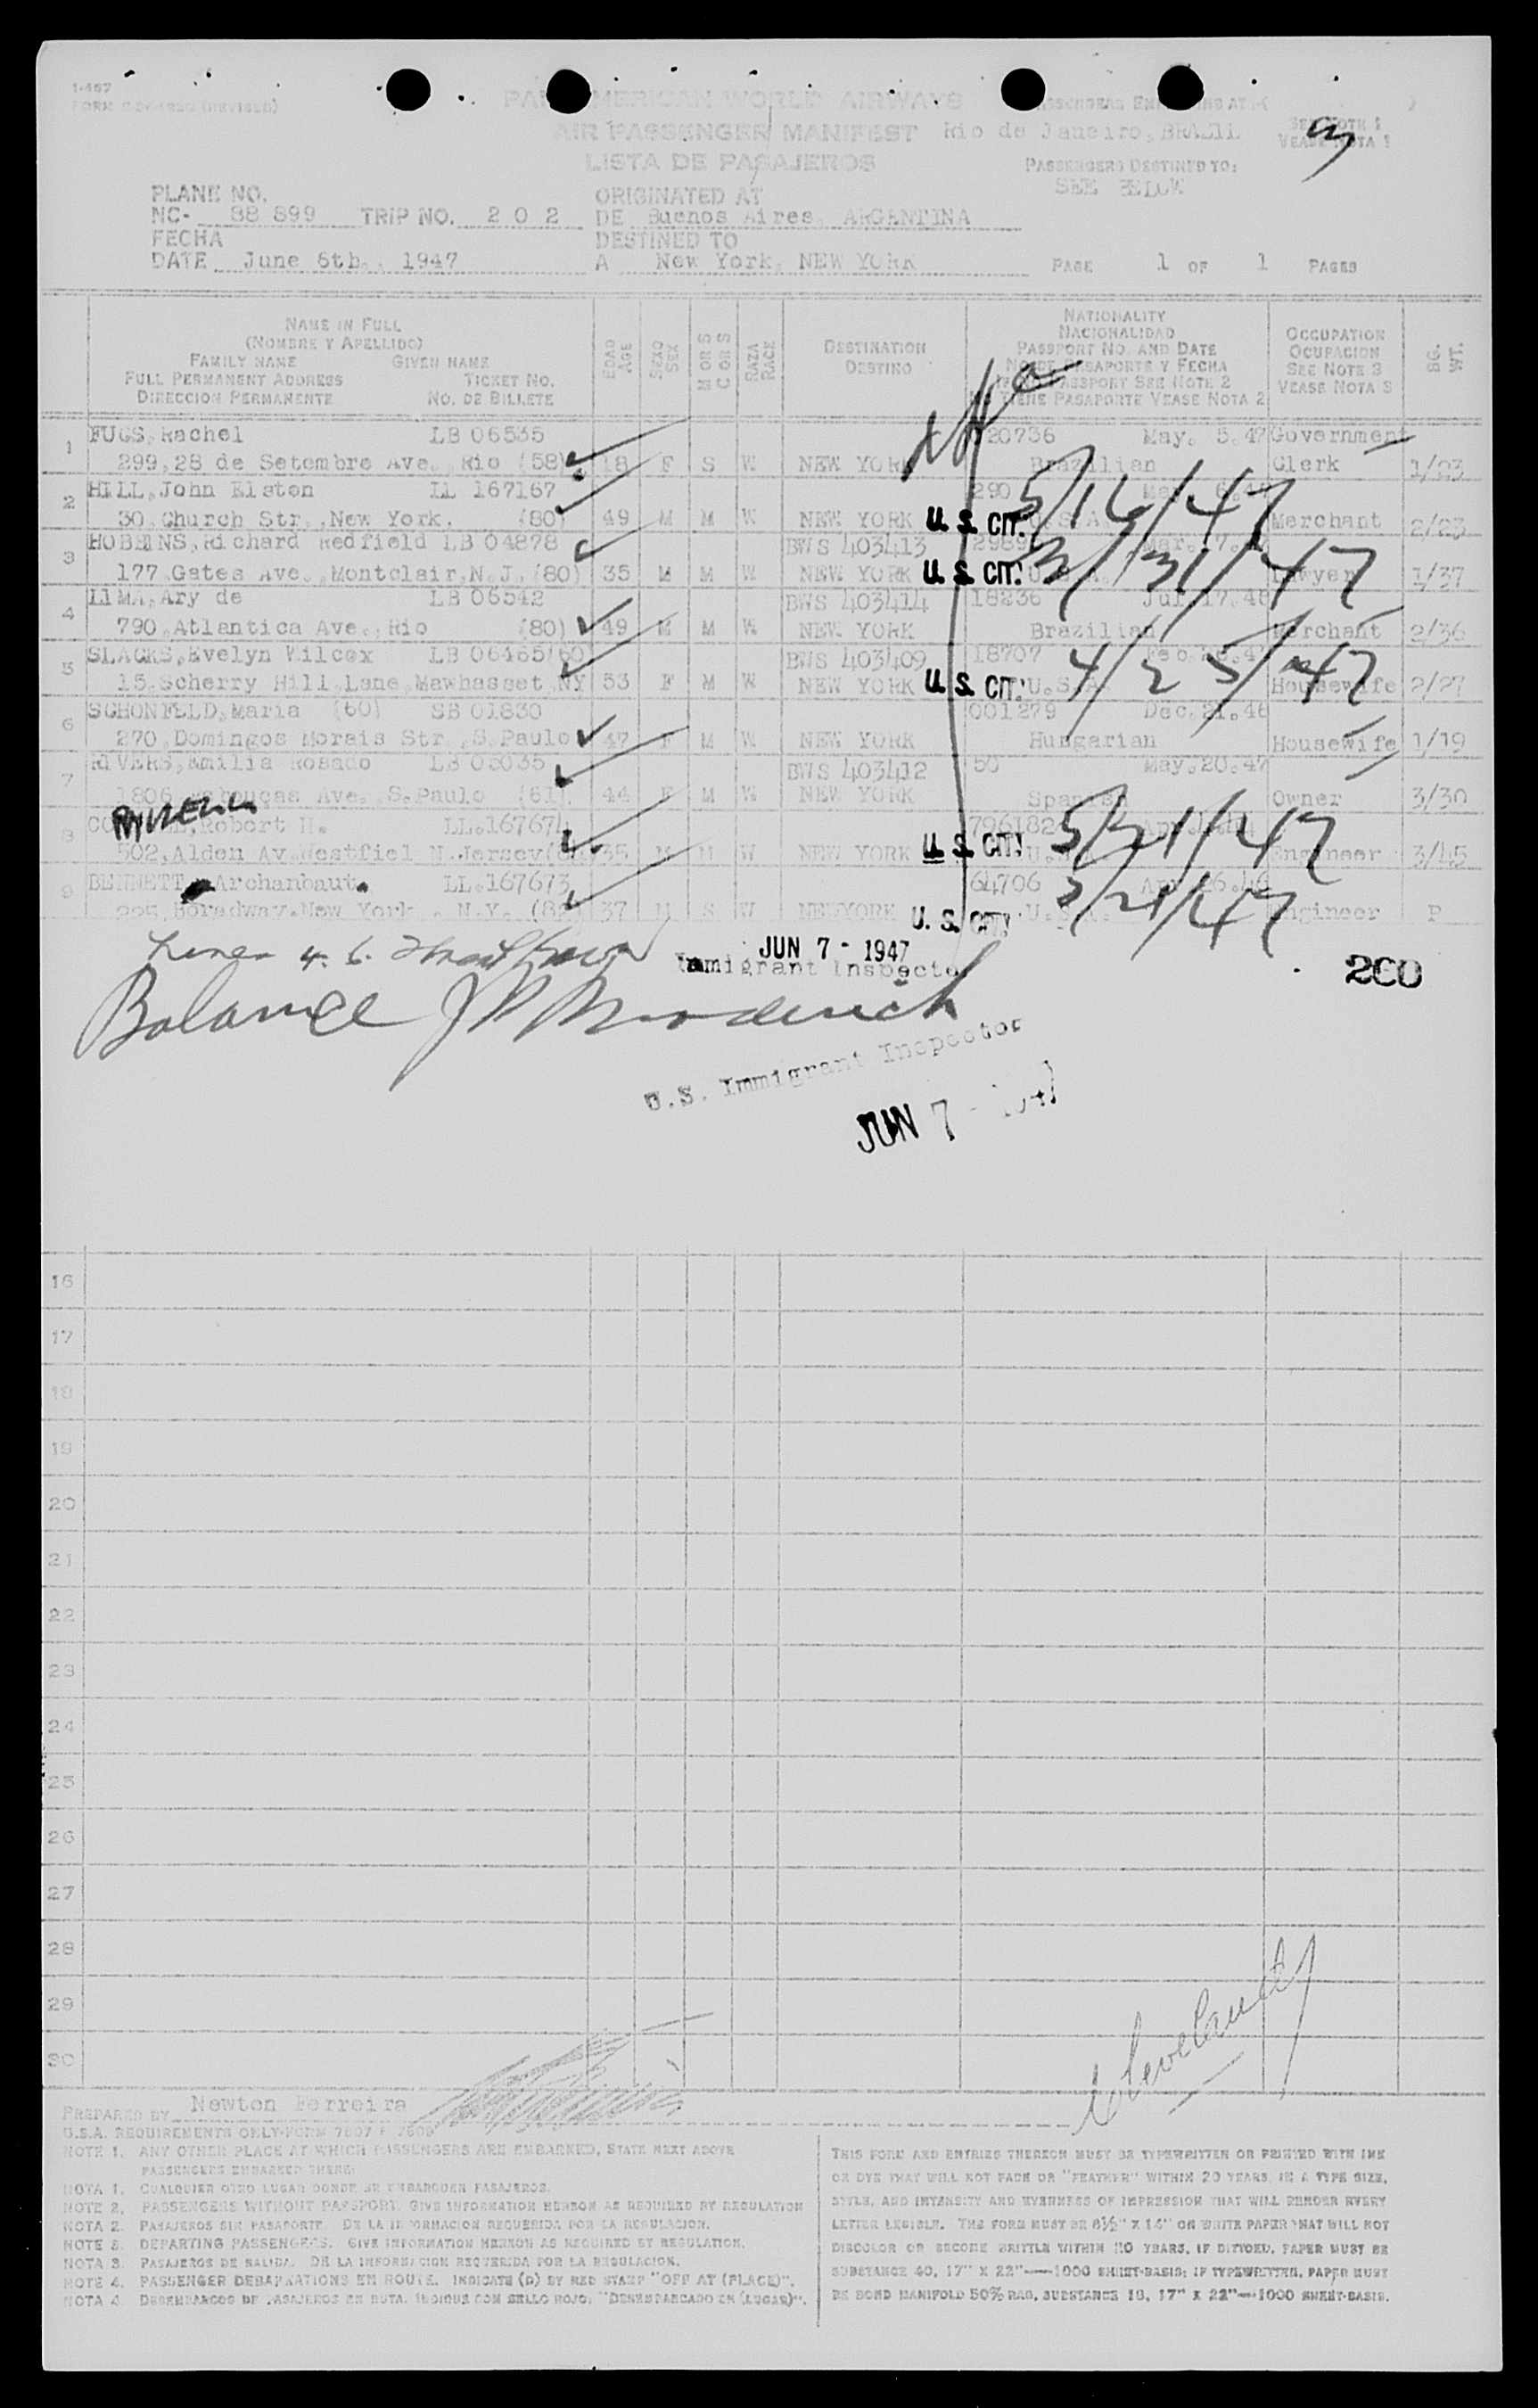 1-467
PAN AMERICAN WORLD AIRWAYS
AIR PASSENGER MANIFEST Rio de Janeiro, BRAZIL
LISTA DE PASAJEROS
PASSENGERS DESTINED TO:
SEE BELOW
PLANE NO.
NC- 88 899 TRIP NO. 2 0 2
ORIGINATED AT
DE Buenos Aires, ARGENTINA
FECHA
DATE June 6th. 1947
DESTINED TO
A New York, NEW YORK
PAGE 1 OF 1 PAGES
NAME IN FULL
(NOMBRE Y APELLIDO)
FAMILY NAME GIVEN NAME
FULL PERMANENT ADDRESS TICKET NO.
DIRECCION PERMANENTE NO. DE BILLETE
EDAD AGE
SEXO SEX
M OR S C OR S
RAZA RACE
DESTINATION
DESTINO
NATIONALITY
NACIONALIDAD
PASSPORT NO. AND DATE
PASAPORTE Y FECHA
PASSPORT SEE NOTE 2
TIENE PASAPORTE VEASE NOTA 2
OCCUPATION
OCUPACION
SEE NOTE 3
VEASE NOTA 3
BG. WT.
1 FUGS, Rachel LB 06535 20736 May. 5.47 Government
299, 28 de Setembro Ave. Rio (58) 18 F S W NEW YORK Brazilian Clerk 1/23
2 HILL, John Elston LL 167167 290
30, Church Str., New York. (80) 49 M M W NEW YORK U. S. CIT. 5/16/47 Merchant 2/23
3 HOBBINS, Richard Redfield LB 04878 BWS 403413
177 Gates Ave. Montclair, N.J. (80) 35 M M W NEW YORK U. S. CIT. 3/31/47 Lawyer 1/37
4 LIMA, Ary de LB 06542 BWS 403414 18236 Jul. 17.46
790, Atlantica Ave., Rio (80) 49 M M W NEW YORK Brazilian Merchant 2/36
5 SLACKS, Evelyn Wilcox LB 06465 (60) BWS 403409 18707
15, Scherry Hill, Lane, Mawhasset, NY 53 F M W NEW YORK U. S. CIT. U.S.A. 4/25/47 Housewife 2/27
6 SCHONFELD, Maria (60) SB 01830 001279 Dec. 21.46
270, Domingos Morais Str., S. Paulo 47 F M W NEW YORK Hungarian Housewife 1/19
7 RIVERS, Emilia Rosado LB 05035 BWS 403412 50 May. 20.47
1806, Ave. S. Paulo (61) 44 F M W NEW YORK Spanish Owner 3/30
8 Robert H. LL. 167674 796182
502, Alden Av. Westfiel N. Jersey 35 M M W NEW YORK U. S. CIT. 5/21/47 Engineer 3/45
9 BENNETT, Archanbaut. LL. 167673 64706
225, Boradway. New York. N.Y. 37 M S W NEWYORK U. S. CIT. U.S.A. Engineer P
JUN 7 - 1947
Immigrant Inspector
260
Balance
U.S. Immigrant Inspector
JUN 7 -
16
17
18
19
20
21
22
23
24
25
26
27
28
29
30
PREPARED BY Newton Ferreira
U.S.A. REQUIREMENTS ONLY-FORM
NOTE 1. ANY OTHER PLACE AT WHICH PASSENGERS ARE EMBARKED, STATE NEXT ABOVE
PASSENGERS EMBARKED THERE.
NOTA 1. CUALQUIER OTRO LUGAR DONDE SE EMBARQUEN PASAJEROS.
NOTE 2. PASSENGERS WITHOUT PASSPORT. GIVE INFORMATION HEREON AS REQUIRED BY REGULATION
NOTA 2. PASAJEROS SIN PASAPORTE. DE LA INFORMACION REQUERIDA POR LA REGULACION.
NOTE 3. DEPARTING PASSENGERS. GIVE INFORMATION HEREON AS REQUIRED BY REGULATION.
NOTA 3. PASAJEROS DE SALIDA. DE LA INFORMACION REQUERIDA POR LA REGULACION.
NOTE 4. PASSENGER DEBARKATIONS EN ROUTE. INDICATE (D) BY RED STAMP "OFF AT (PLACE)".
NOTA 4. DESEMBARCOS DE PASAJEROS EN RUTA. INDIQUE CON SELLO ROJO, "DESEMBARCADO EN (LUGAR)".
THIS FORM AND ENTRIES THEREON MUST BE TYPEWRITTEN OR PRINTED WITH INK
OR DYE THAT WILL NOT FADE OR "FEATHER" WITHIN 20 YEARS, IN A TYPE SIZE,
STYLE, AND INTENSITY AND EVENNESS OF IMPRESSION THAT WILL RENDER EVERY
LETTER LEGIBLE. THE FORM MUST BE 8½" X 14" ON WHITE PAPER THAT WILL NOT
DISCOLOR OR BECOME BRITTLE WITHIN 20 YEARS. IF DITTOED, PAPER MUST BE
SUBSTANCE 40, 17" X 22"—1000 SHEET-BASIS; IF TYPEWRITTEN, PAPER MUST
BE BOND MANIFOLD 50% RAG, SUBSTANCE 16, 17" X 22"—1000 SHEET-BASIS.